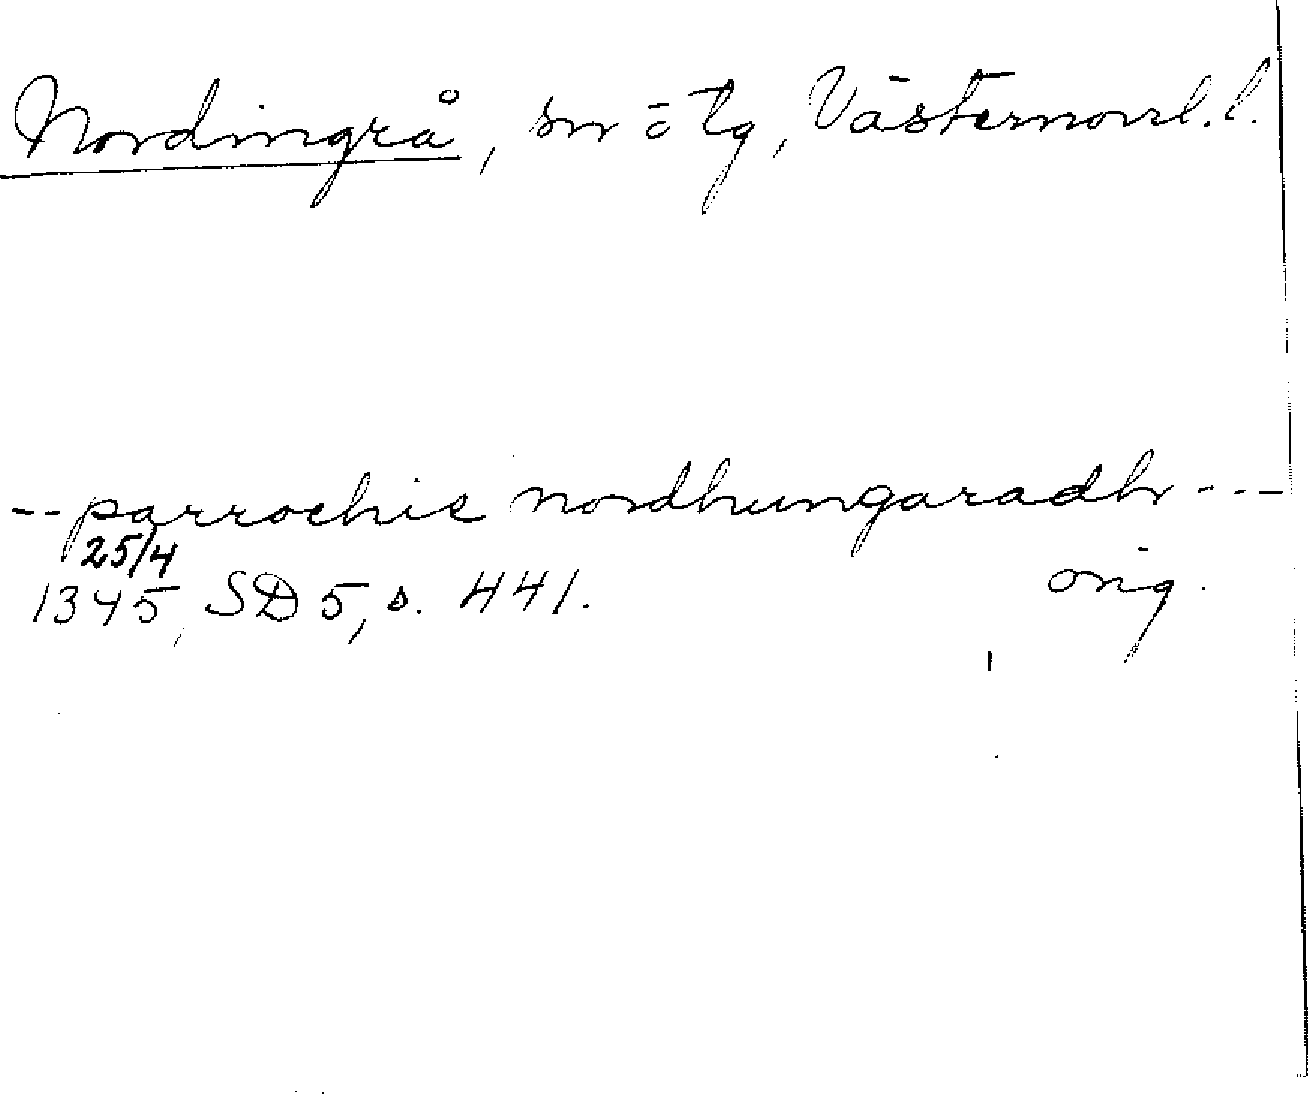 Nordingrå, sn ö tg, Västernorrl. l.
-- parrochie nordhungaradhr ---
25/4
1345, SD 5, s. 441. orig.